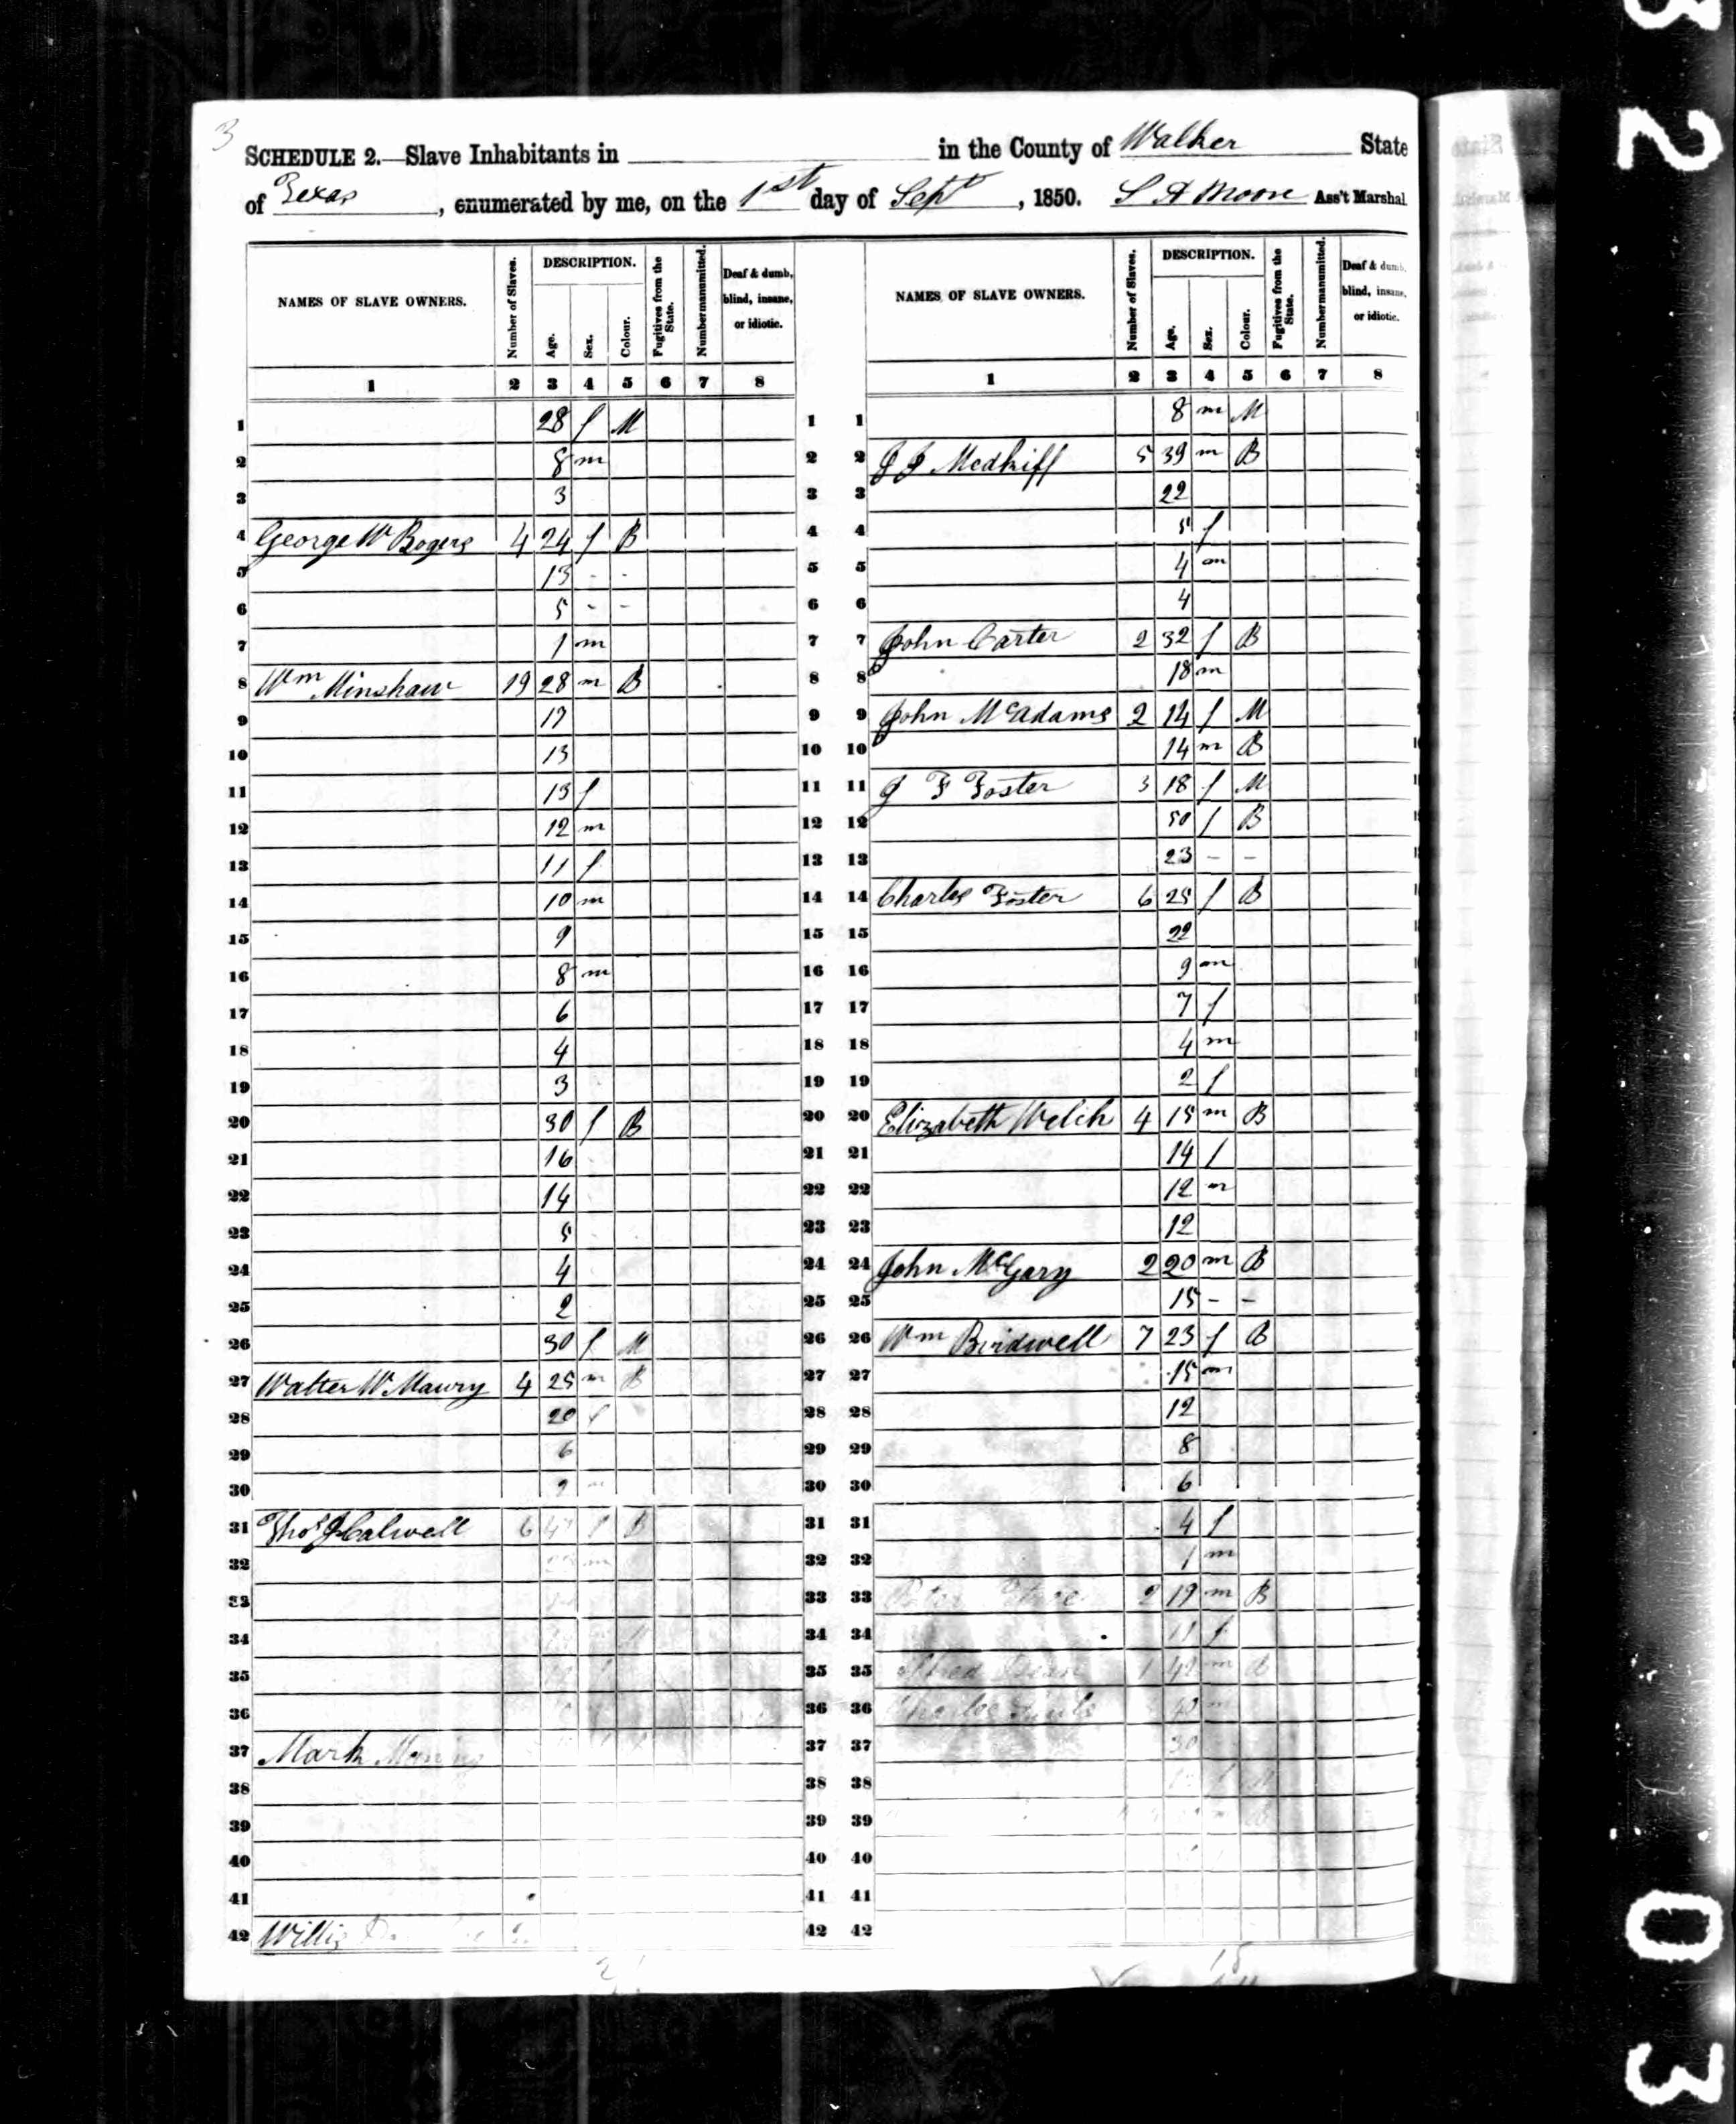 3
SCHEDULE 2.—Slave Inhabitants in in the County of Walker State
of Texas, enumerated by me, on the 1st day of Sept, 1850. S A Moore Ass't Marshal.
NAMES OF SLAVE OWNERS. Number of Slaves. DESCRIPTION. Age. Sex. Colour. Fugitives from the State. Number manumitted. Deaf & dumb, blind, insane, or idiotic.
1 2 3 4 5 6 7 8
1 28 f M 1
2 8 m 2
3 3 3
4 George W Rogers 4 24 f B 4
5 13 - - 5
6 5 - - 6
7 1 m 7
8 Wm Minshaw 19 28 m B 8
9 17 9
10 13 10
11 13 f 11
12 12 m 12
13 11 f 13
14 10 m 14
15 9 15
16 8 m 16
17 6 17
18 4 18
19 3 19
20 30 f B 20
21 16 21
22 14 22
23 5 23
24 4 24
25 2 25
26 30 f M 26
27 Walter W Maury 4 25 m B 27
28 20 f 28
29 6 29
30 30
31 Thos J Calwell 6 f B 31
32 m 32
33 33
34 34
35 35
36 36
37 Mark 37
38 38
39 39
40 40
41 41
42 Willis 42
NAMES OF SLAVE OWNERS. Number of Slaves. DESCRIPTION. Age. Sex. Colour. Fugitives from the State. Number manumitted. Deaf & dumb, blind, insane, or idiotic.
1 2 3 4 5 6 7 8
1 8 m M
2 J J 5 39 m B
3 22
4 5 f
5 4 m
6 4
7 John Carter 2 32 f B
8 18 m
9 John McAdams 2 14 f M
10 14 m B
11 J F Foster 3 18 f M
12 50 f B
13 23 - -
14 Charles Foster 6 25 f B
15 22
16 9 m
17 7 f
18 4 m
19 2 f
20 Elizabeth Welch 4 15 m B
21 14 f
22 12 m
23 12
24 John McGary 2 20 m B
25 15 - -
26 Wm Birdwell 7 23 f B
27 15 m
28 12
29 8
30 6
31 4 f
32 1 m
33 2 19 m B
34 11 f
35 1 m B
36 m
37 30
38
39
40
41
42
3 2
0 3